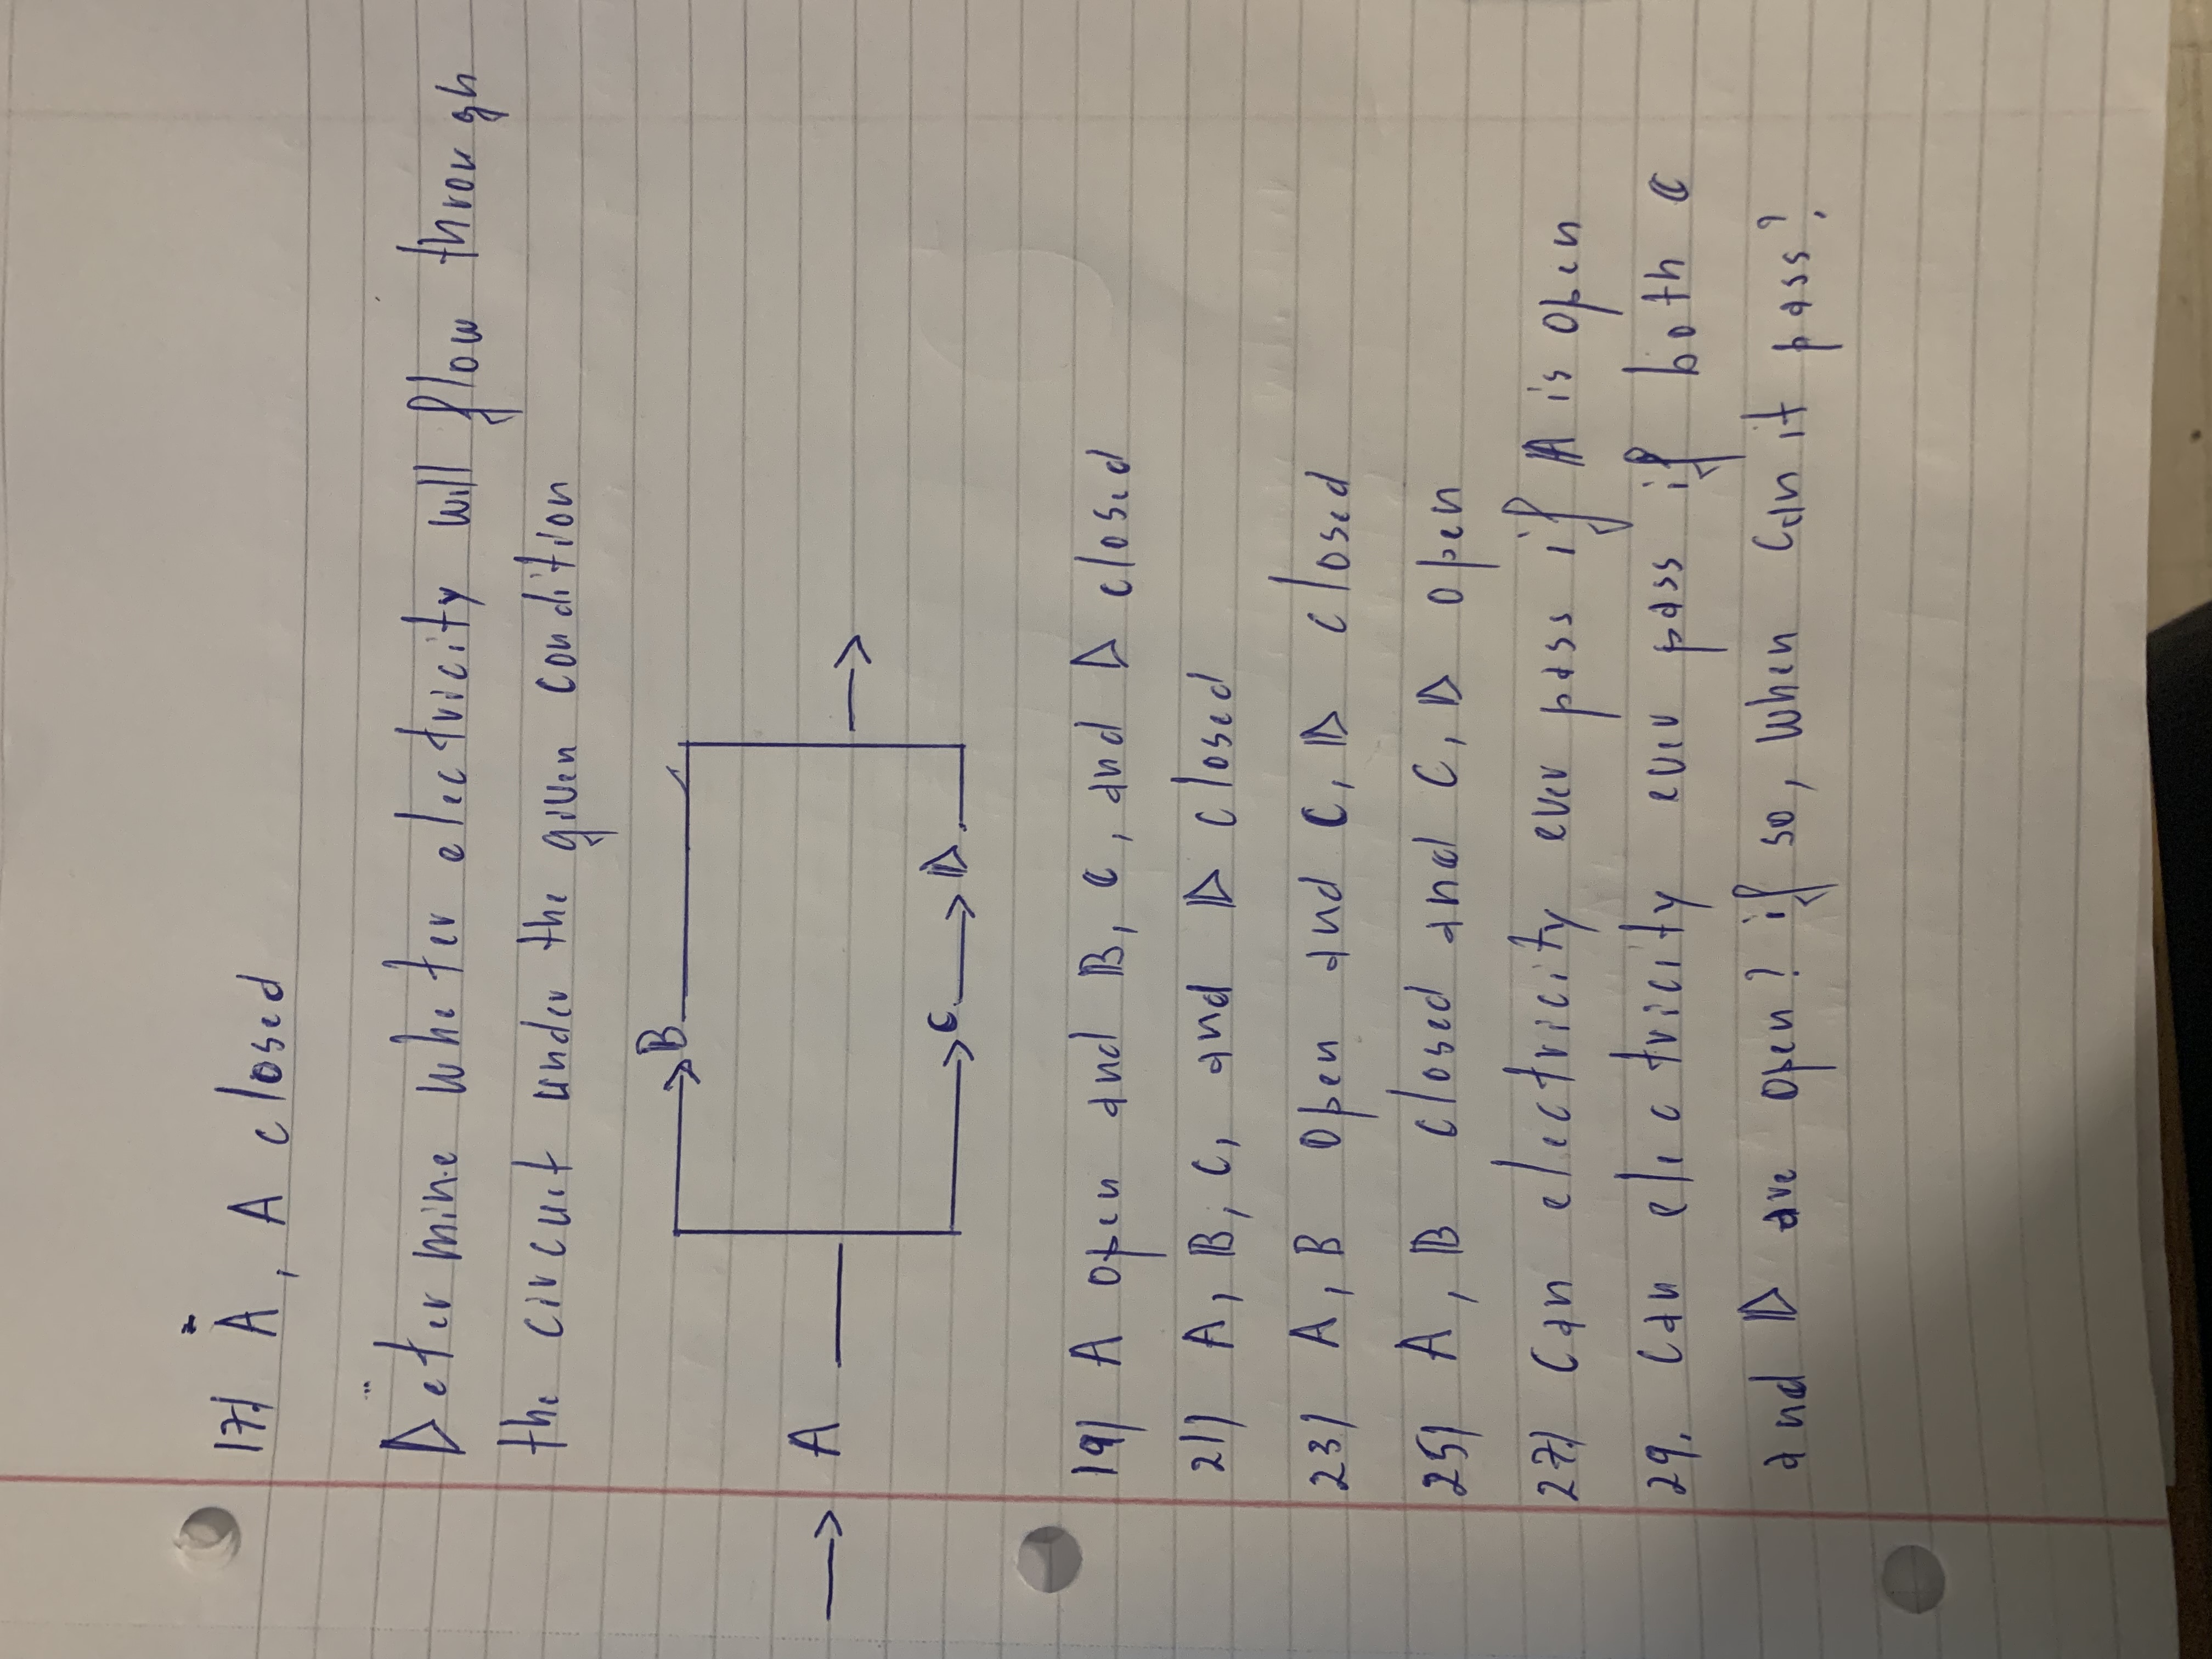 17) A, A closed
Determine wheter electricity will flow through
the circuit under the given condition
→ A — B — →
C → D
19) A open and B, C, and D closed
21) A, B, C, and D closed
23) A, B open and C, D closed
25) A, B closed and C, D open
27) Can electricity ever pass if A is open
29. Can electricity ever pass if both C
and D are open? if so, when can it pass?